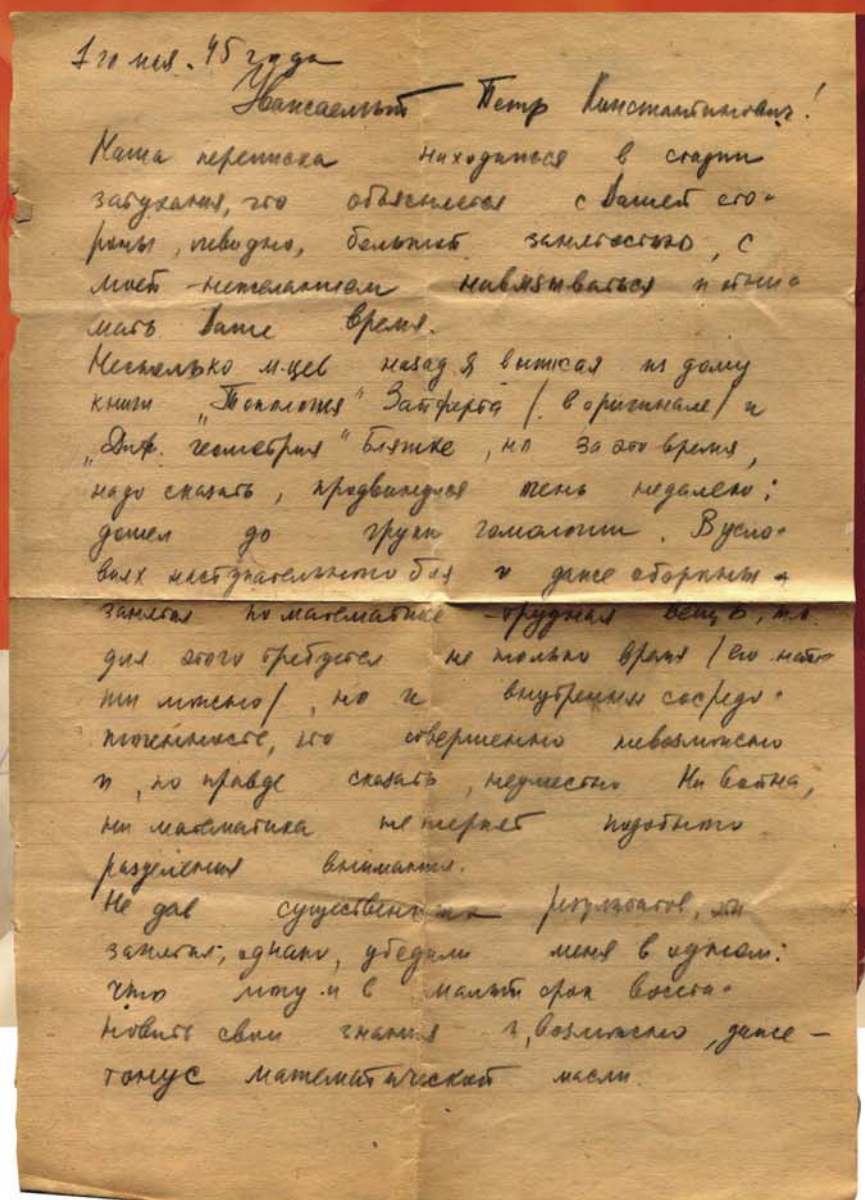 1го мая. 45 года
Уважаемый Петр Константинович!
Наша переписка находиться в стадии
затухания, что объясняется с Вашей сто-
роны, очевидно, большой занятостью, с
моей - нежеланием навязываться и отни-
мать Ваше время.
Несколько м-цев назад я выписал из дому
книги "Топология" Зайферта /в оригинале/ и
"Диф. геометрия" Бляшке, но за это время,
надо сказать, продвинулся очень недалеко:
дошел до групп гомологии. В усло-
виях наступательного боя и даже обороны
занятия по математике - трудная вещь, т.к.
для этого требуется не только время /его най-
ти можно/, но и внутренняя сосредо-
точенность, что совершенно невозможно
и, по правде сказать, неуместно. Ни война,
ни математика не терпят подобного
разделения внимания.
Не дав существенных результатов, эти
занятия, однако, убедили меня в одном:
что могу и в малый срок восста-
новить свои знания и, возможно, даже -
тонус математической мысли.